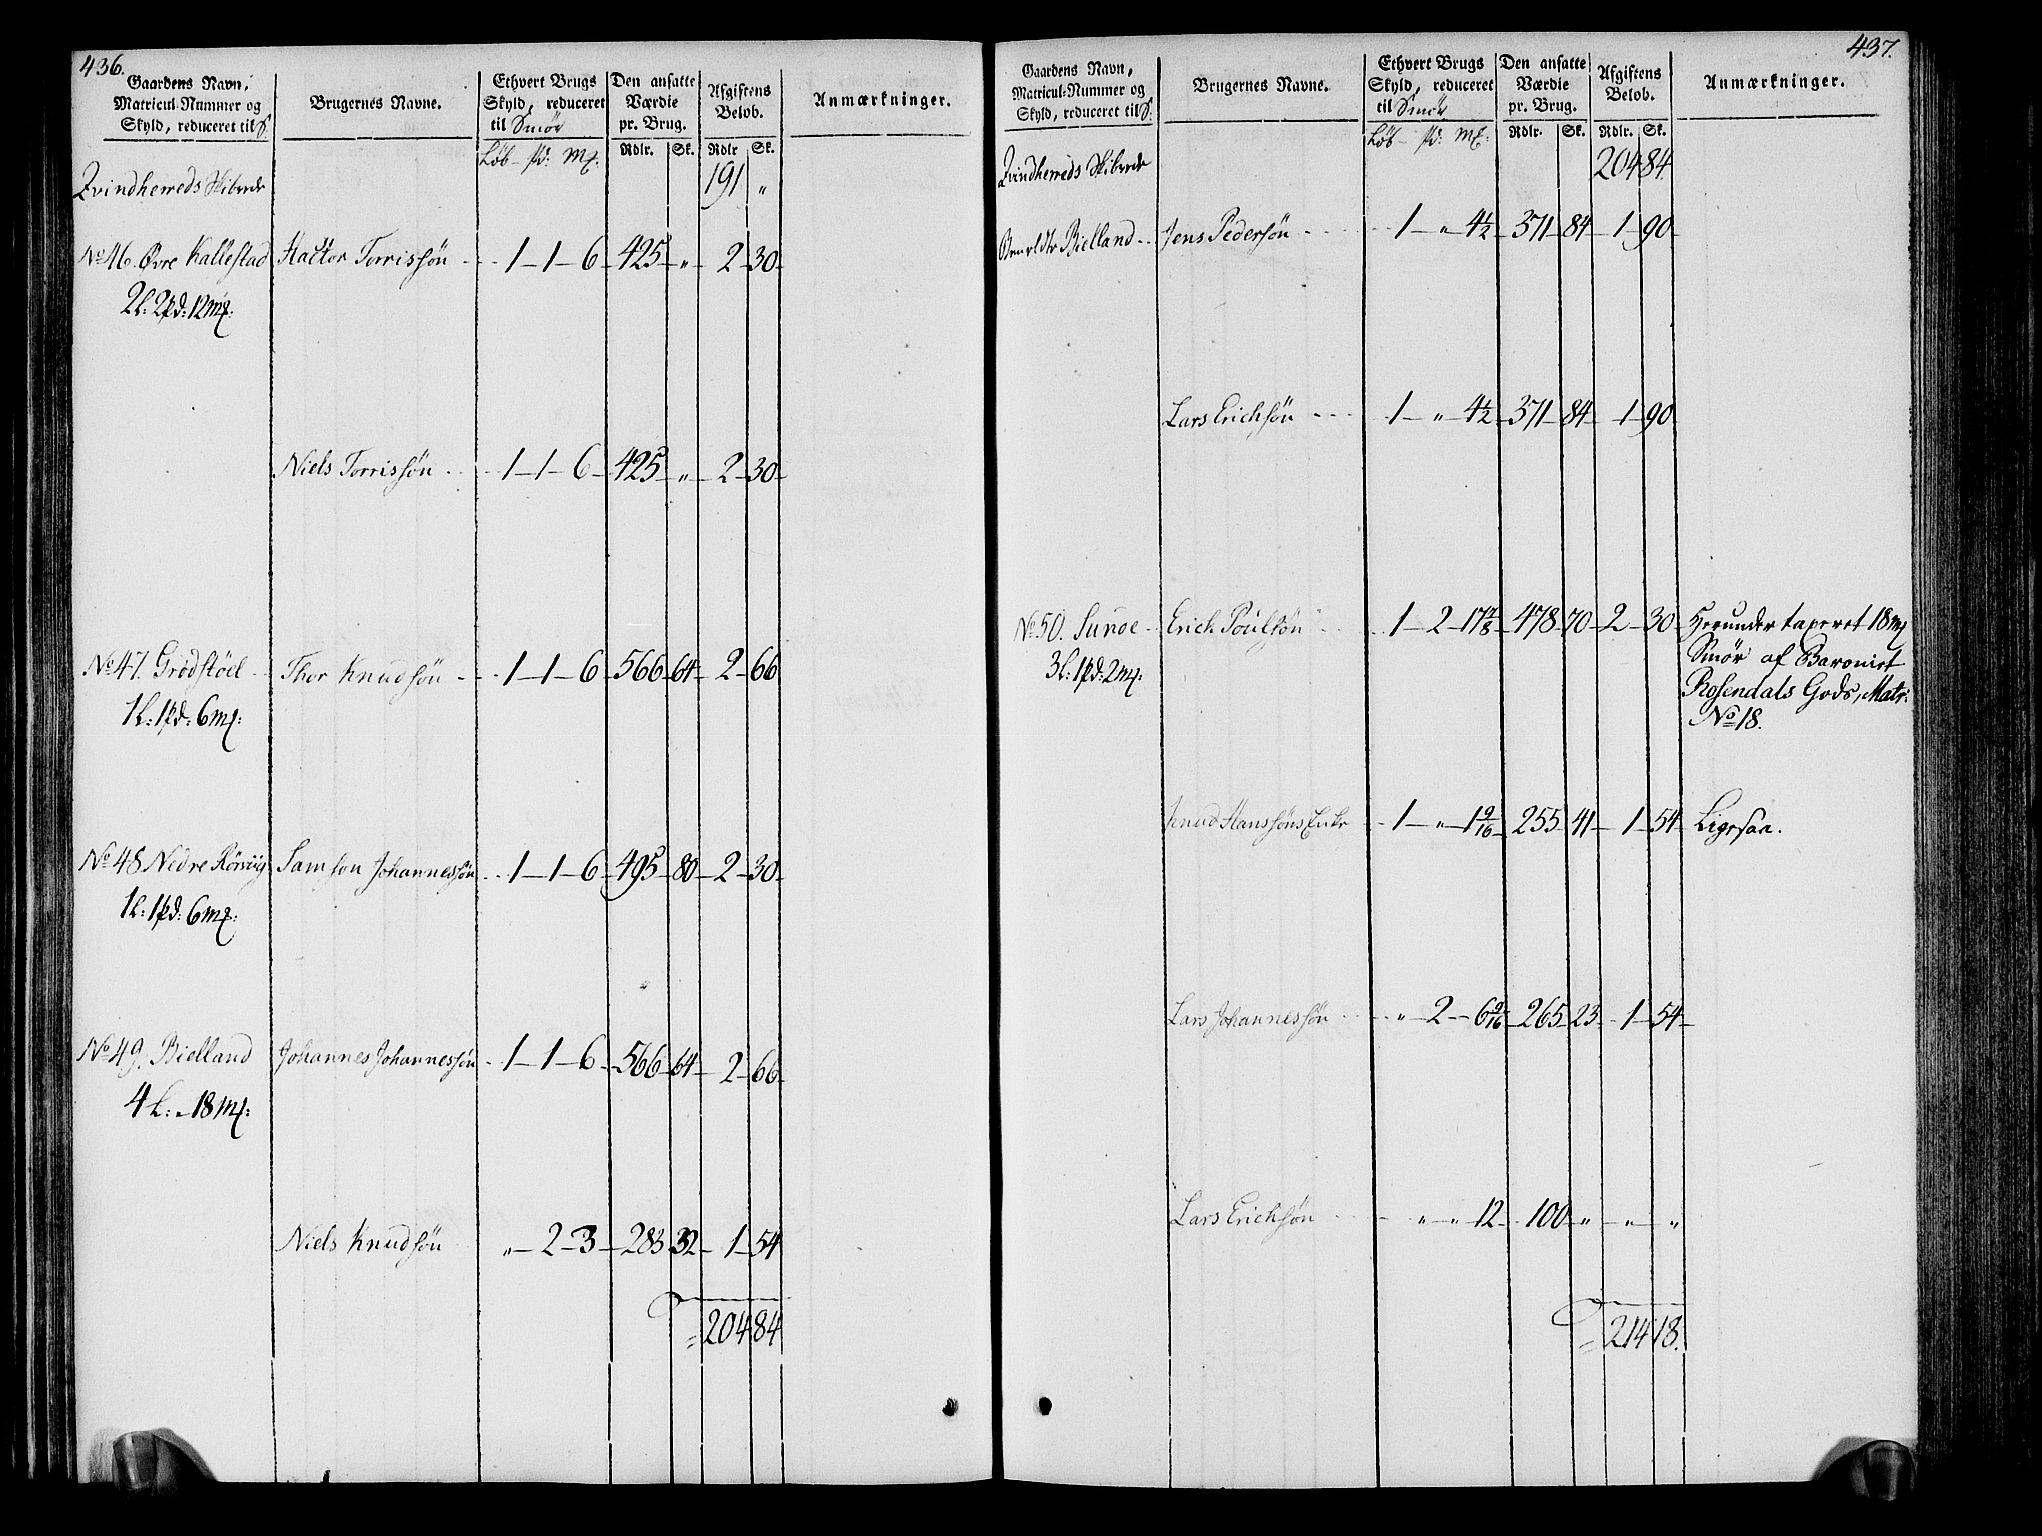 436.
Gaardens Navn, Matricul-Nummer og Skyld, reduceret til S: | Brugernes Navne. | Ethvert Brugs Skyld, reduceret til Smör | Den ansatte Værdie pr. Brug. | Afgiftens Beløb. | Anmærkninger.
Löb - pd: Mk: | Rdlr. | Sk. | Rdlr | Sk.
Qvindherreds Skibrede 191 „
No 46. Øvre Kallestad Hactor Torrissön 1 – 1 – 6 425 „ 2 – 30
2l: 2pd: 12mk:
Niels Torrissön 1 – 1 – 6 425 „ 2 – 30
No 47. Grödstöel Thor Knudsön 1 – 1 – 6 566 64 2 – 66
1l: 1pd: 6mk:
No 48. Nedre Rörviig Samson Johannessön 1 – 1 – 6 495 80 2 – 30
1l: 1pd: 6mk:
No 49. Bielland Johannes Johannessön 1 – 1 – 6 566 64 2 – 66
4l: „ 18mk:
Niels Knudsön „ – 2 – 3 283 32 1 – 54
204 84
437.
Gaardens Navn, Matricul-Nummer og Skyld, reduceret til S: | Brugernes Navne. | Ethvert Brugs Skyld, reduceret til Smör | Den ansatte Værdie pr. Brug. | Afgiftens Beløb. | Anmærkninger.
Löb - pd: Mk: | Rdlr. | Sk. | Rdlr. | Sk.
Qvindherreds Skibrede 204 84
Bielland Jens Pedersön 1 – „ 4½ 371 84 1 90
Lars Erichsön 1 – „ 4½ 371 84 1 90
No 50. Sunde Erich Poulsön 1 – 2 – 17⅞ 478 70 2 – 30 Herunder taxeret 18mk
3l: 1pd: 2mk: Smör af Baroniet
Rosendals Gods, Matr:
No 18.
Knud Hanssöns Enke 1 – „ 1 9/16 255 41 1 54 Ligesaa.
Lars Johannessön „ 2 – 6 9/16 265 23 1 54
Lars Erichsön „ „ 12 100 „ „ „
214 18.